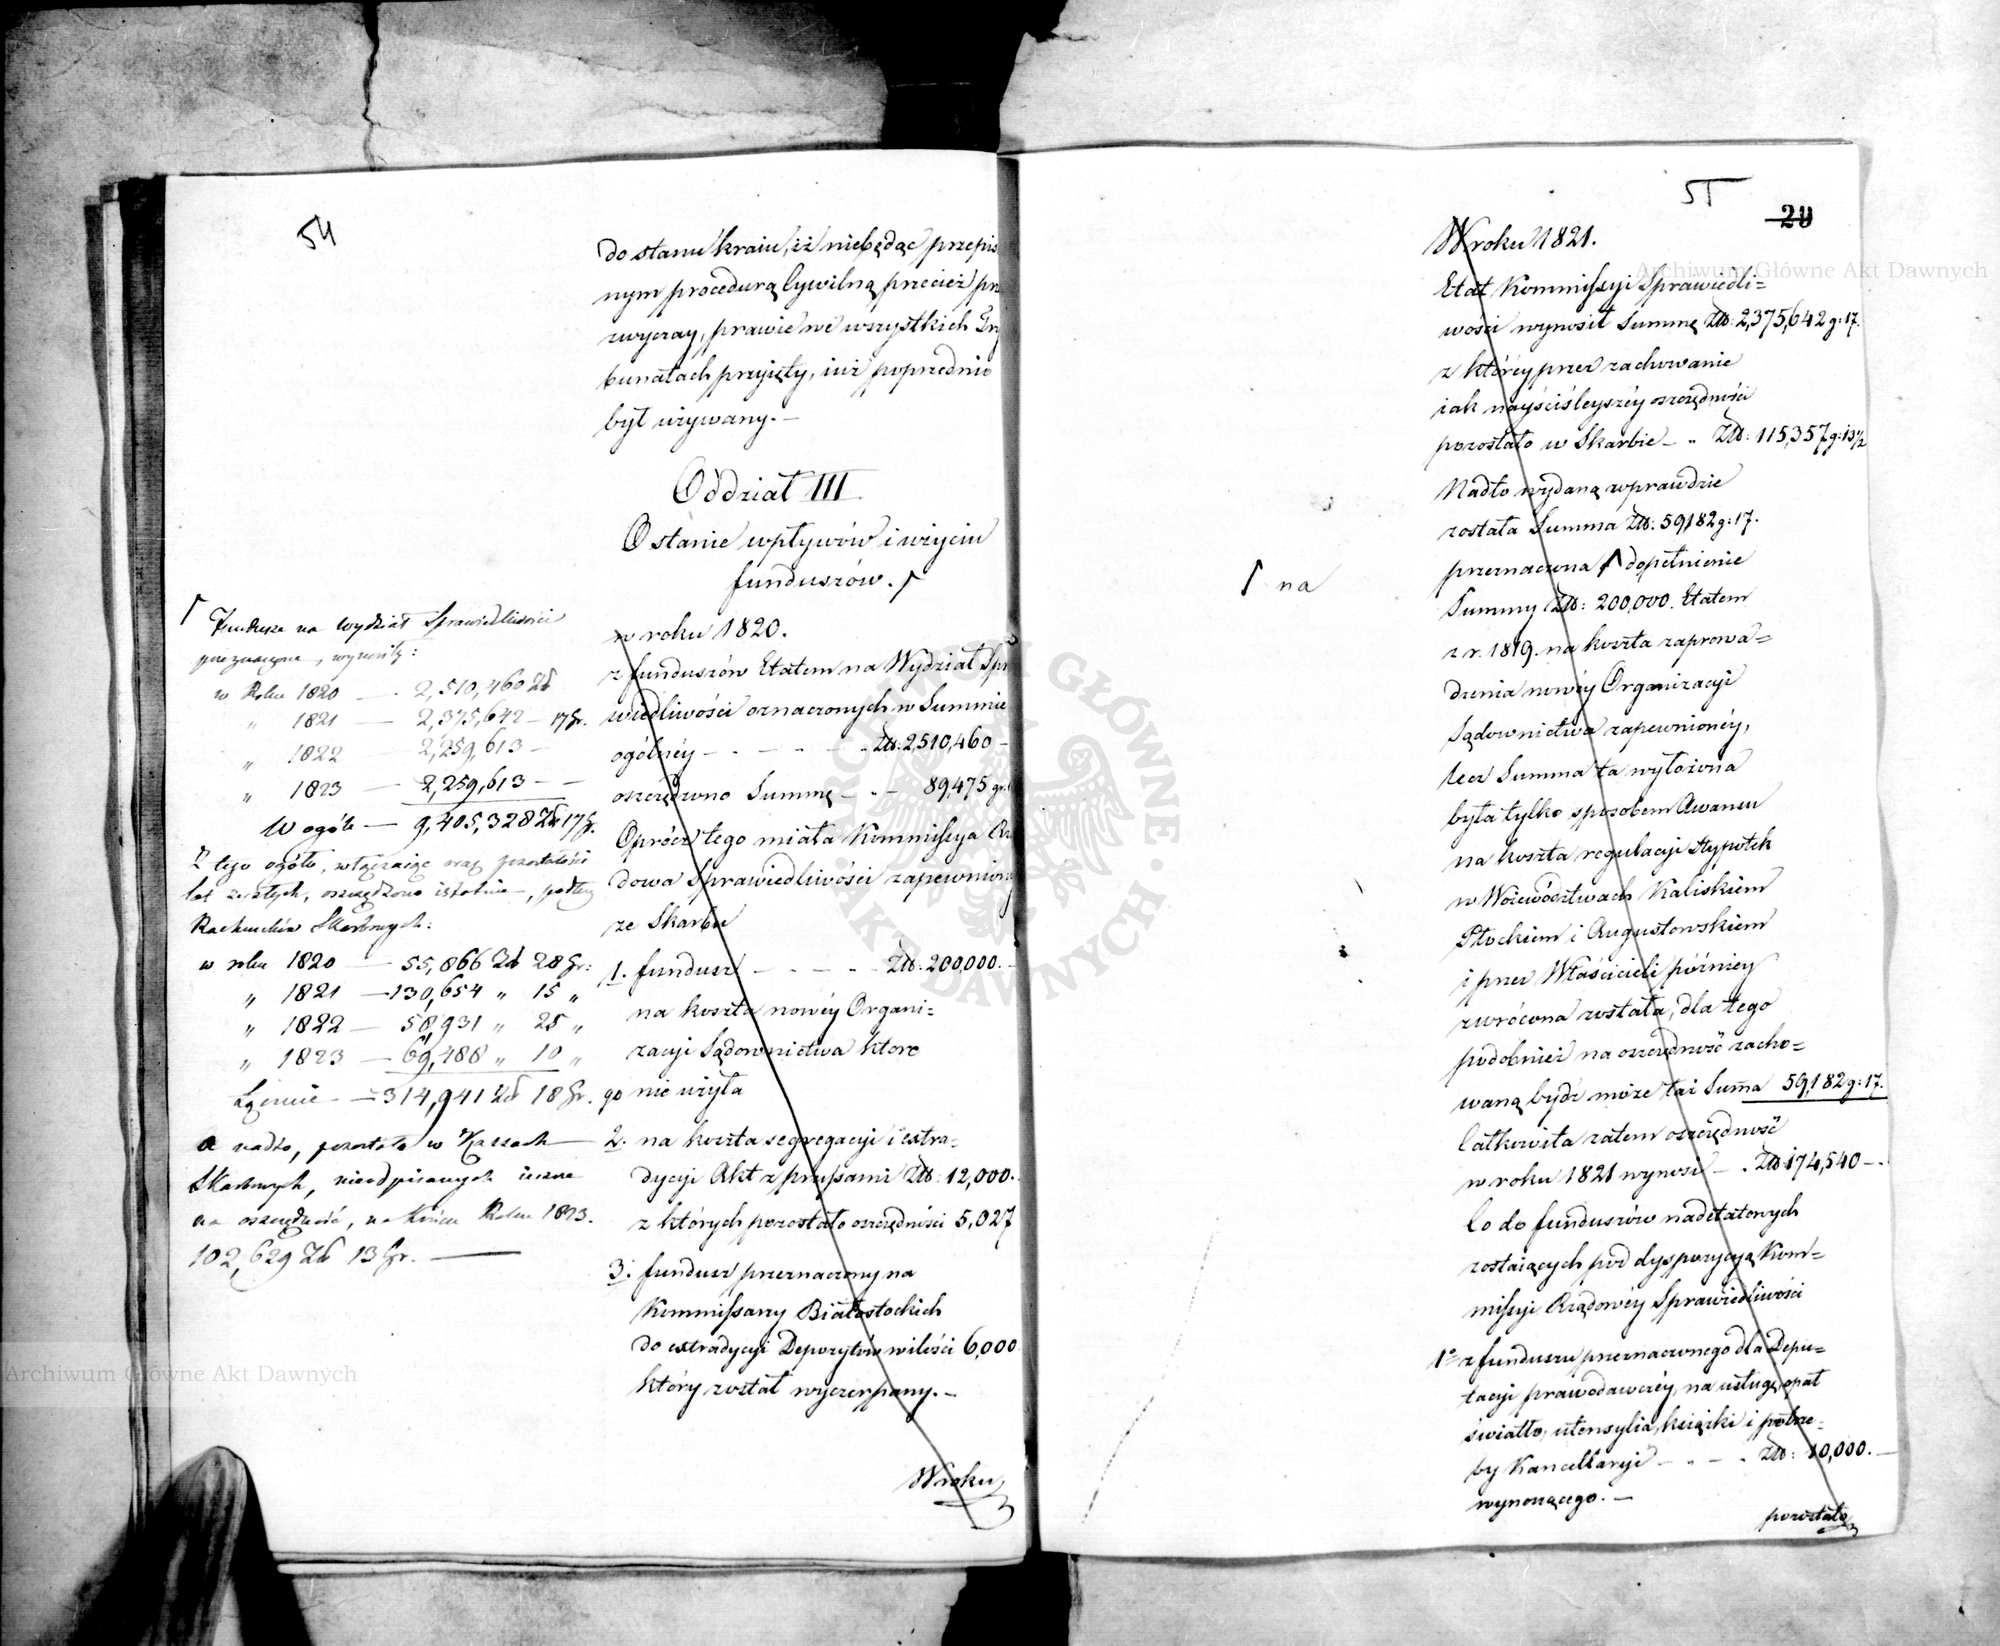 54
do stanu kraiu, iż niebędąc przepis
nym procedurą Cywilną przecież
zwyczay, prawie we wszystkich Try
bunałach przyięty, iuż poprzednio
był używany. —
Oddział III.
O stanie wpływów i użyciu
funduszów.
Fundusze na Wydział Sprawiedliwości
przeznaczone, wynosiły:
w Roku 1820 — 2,510,460 Zł
„ 1821 — 2,375,642 — 17 gr.
„ 1822 — 2,259,613 —
„ 1823 — 2,259,613 — —
W ogóle — 9,405,328 Zł 17 gr.
Z tego ogółu, włączaiąc oraz pozostałości
lat zeszłych, oszczędzono istotnie, podług
Rachunków Skarbowych:
w roku 1820 — 55,866 Zł 28 gr:
„ 1821 — 130,654 „ 15 „
„ 1822 — 58,931 „ 25 „
„ 1823 — 69,488 „ 10 „
Łącznie — 314,941 Zł 18 gr.
a nadto, pozostało w Kassach
Skarbowych, nieodpisanych ieszcze
na oszczędność, na końcu Roku 1823.
102,629 Zł 13 gr. —
w roku 1820.
z funduszów Etatem na Wydział Spra
wiedliwości oznaczonych w Summie
ogólnéy — - — - — Zł: 2,510,460 —
oszczędzono Summę — - — 89,475 gr.
Oprócz tego miała Kommissya Rzą
dowa Sprawiedliwości zapewniony
ze Skarbu
1. fundusz — - — - Zł: 200,000. —
na koszta nowéy Organi=
zacyi Sądownictwa które
go nie użyła
2. na koszta segregacyi i extra=
dycyi Akt z prussami Zł: 12,000.
z których pozostało oszczędności 5,027
3. fundusz przeznaczony na
Kommissarzy Białostockich
do extradycyi Depozytów w ilości 6,000
który został wyczerpany. —
W roku
55
20
W roku 1821.
Etat Kommissyi Sprawiedli=
wości wynosił Summę Zł: 2,375,642 g: 17.
z któréy przez zachowanie
iak nayściśleyszéy oszczędności
pozostało w Skarbie — - Zł: 115,357 g: 13½
Nadto wydaną wprawdzie
została Summa Zł: 59,182 g: 17.
przeznaczona dopełnienie
na
Summy Zł: 200,000. Etatem
z r. 1819. na koszta zaprowa=
dzenia nowéy Organizacyi
Sądownictwa zapewnionéy,
lecz Summa ta wyłożona
była tylko sposobem Awansu
na koszta regulacyi Hypotek
w Woiewództwach Kaliskiem
Płockiem i Augustowskiem
i przez Właścicieli późniey
zwrócona została, dla tego
podobnież na oszczędność zacho=
waną bydź może taż Summa 59,182 g: 17.
Całkowita zatem oszczędność
w roku 1821 wynosi — . Zł: 174,540 —.
Co do funduszów nadetatowych
zostaiących pod dyspozycyą Kom=
missyi Rządowéy Sprawiedliwości
1° z funduszu przeznaczonego dla Depu=
tacyi prawodawczéy, na usługę, opał
światło, utensylia, książki i potrze=
by Kancellaryi — - — - Zł: 10,000. —
wynoszącego. —
pozostało
Archiwum Główne Akt Dawnych
Archiwum Główne Akt Dawnych
ARCHIWUM GŁÓWNE · AKT DAWNYCH ·